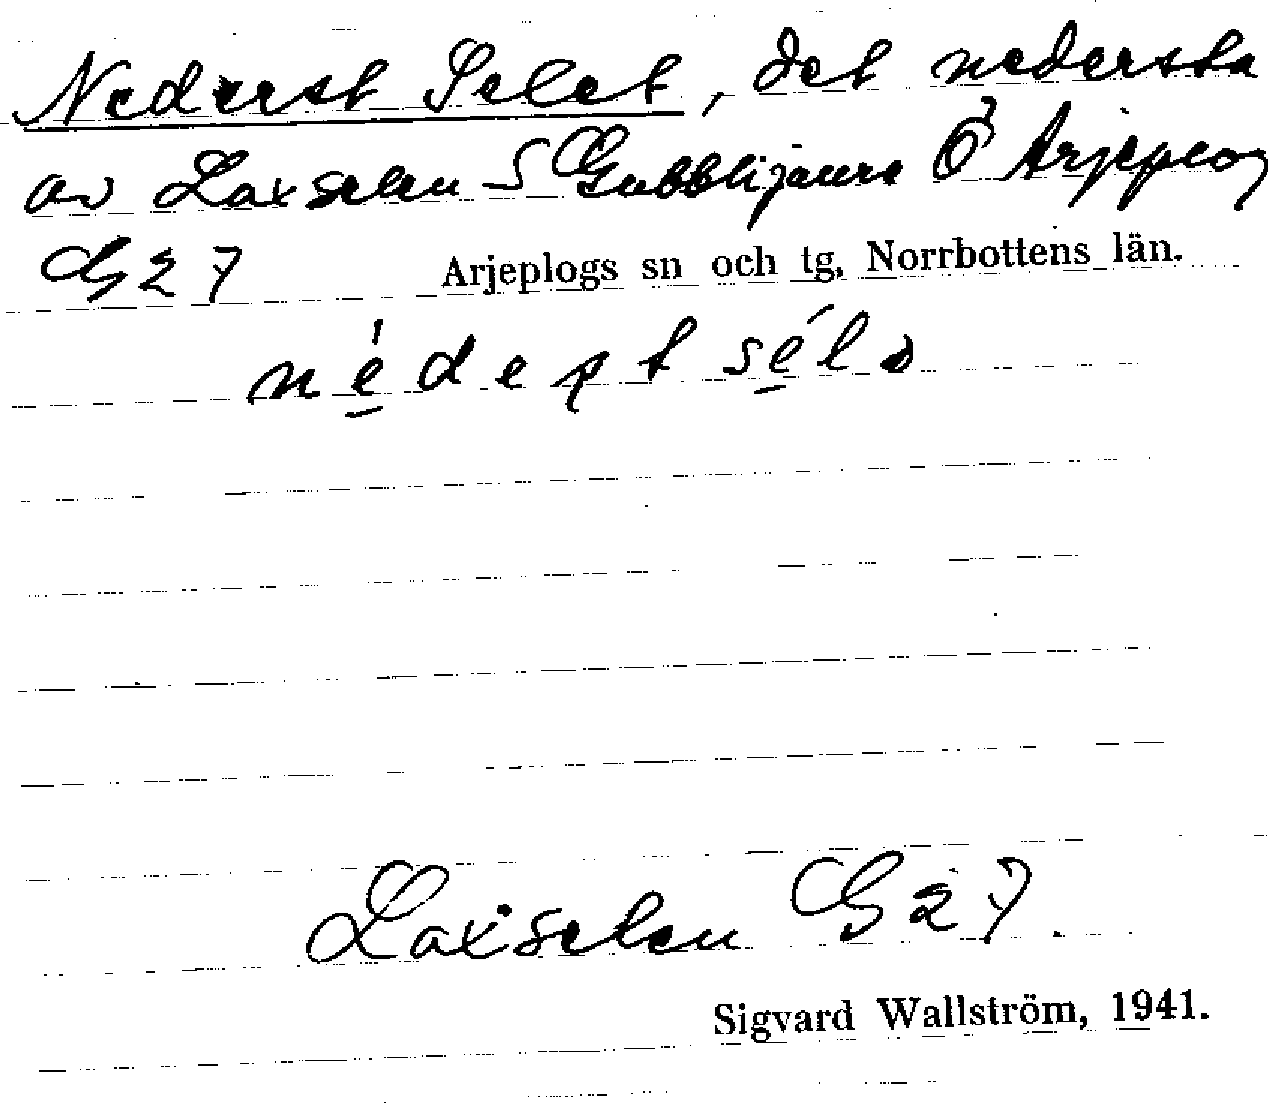 Nederst Selet, det nedersta
av Laxselen S Gubblijaure Ö Arjeplog
G 27 Arjeplogs sn och tg. Norrbottens län.
Laxselen G 27.
Sigvard Wallström, 1941.